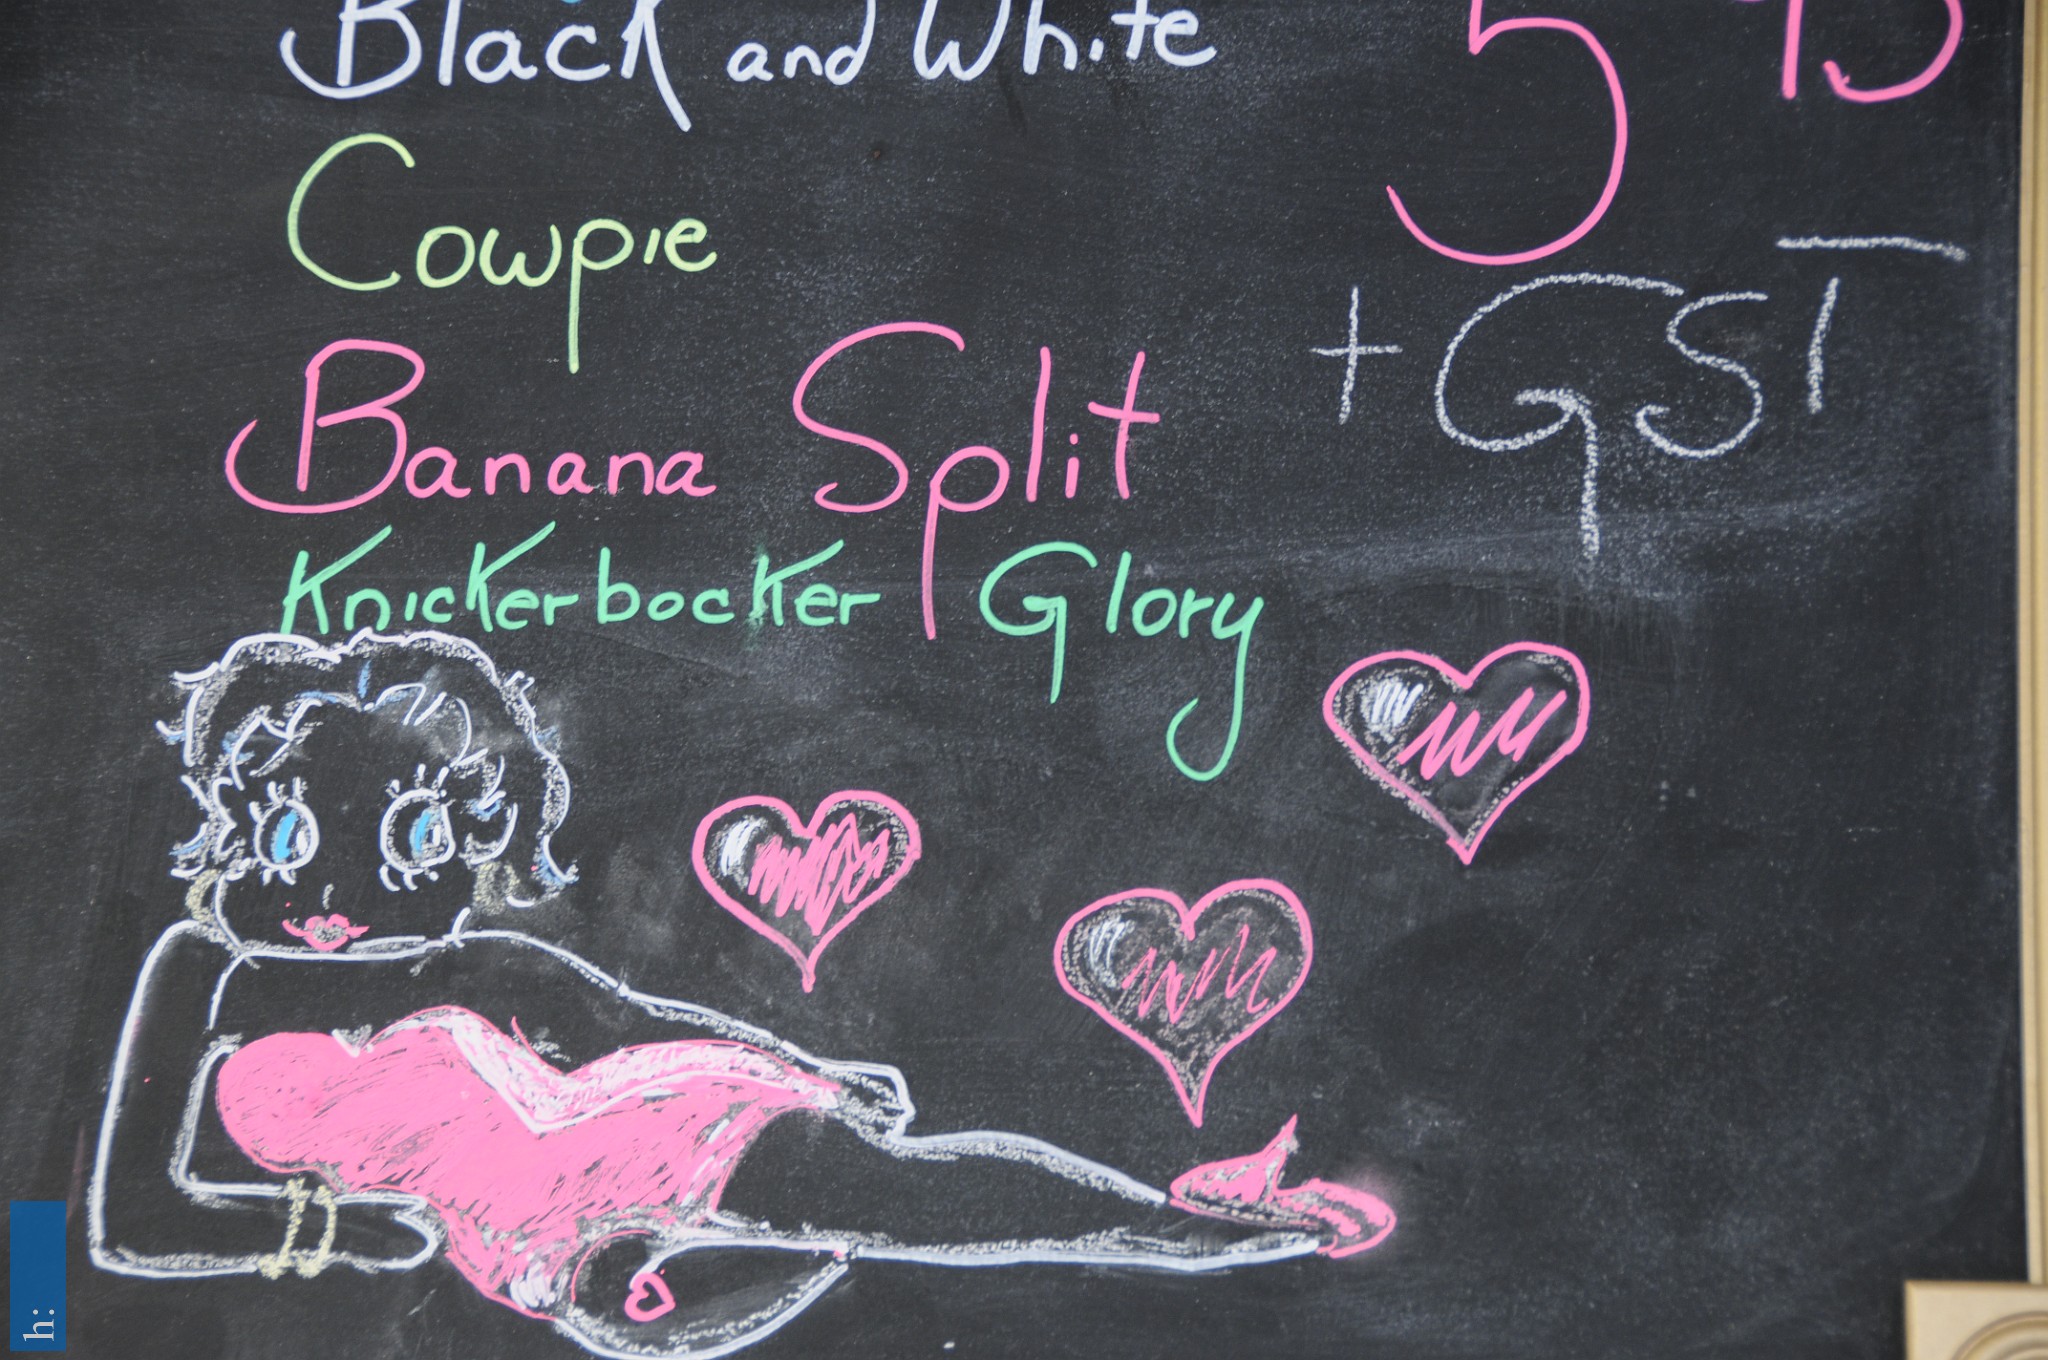 Black and White
Cowpie
Banana Split
Knickerbocker Glory
5
+GST
h: